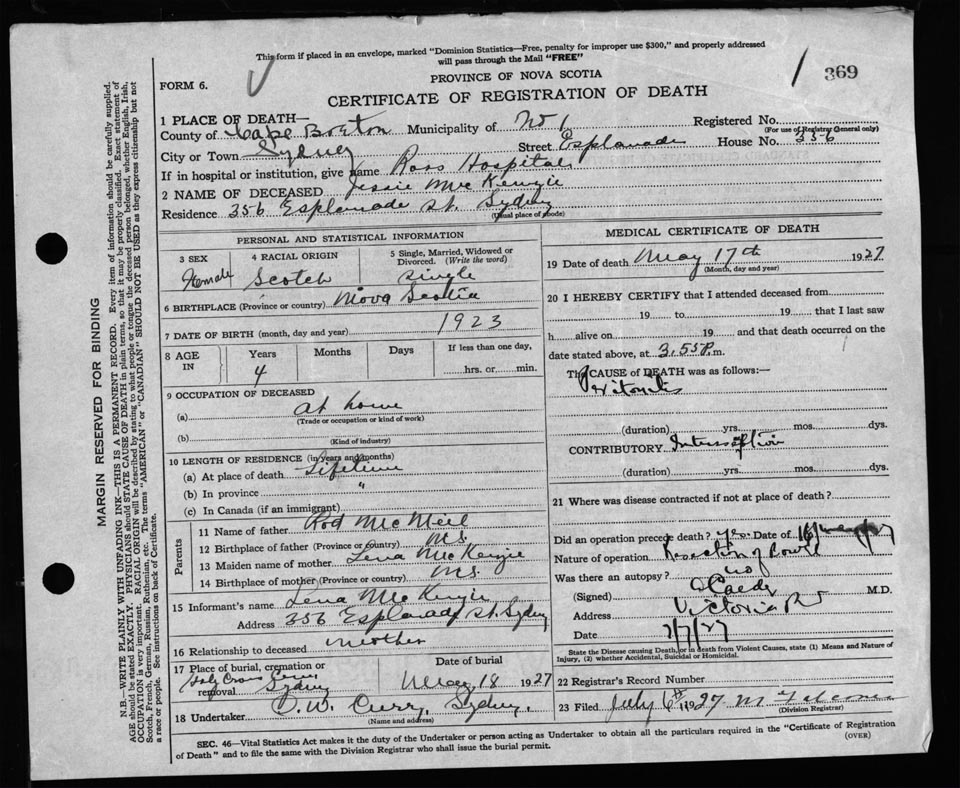 This form if placed in an envelope, marked "Dominion Statistics—Free, penalty for improper use $300," and properly addressed
will pass through the Mail "FREE"
FORM 6.
PROVINCE OF NOVA SCOTIA
369
CERTIFICATE OF REGISTRATION OF DEATH
1 PLACE OF DEATH—
County of Cape Breton Municipality of No 1 Registered No.
(For use of Registrar General only)
City or Town Sydney Street Esplanade House No. 356
If in hospital or institution, give name Ross Hospital
2 NAME OF DECEASED Jessie McKenzie
Residence 356 Esplanade St. Sydney
(Usual place of abode)
PERSONAL AND STATISTICAL INFORMATION
3 SEX 4 RACIAL ORIGIN 5 Single, Married, Widowed or Divorced. (Write the word)
Female Scotch Single
6 BIRTHPLACE (Province or country) Nova Scotia
7 DATE OF BIRTH (month, day and year) 1923
8 AGE IN Years Months Days If less than one day,
4 hrs. or min.
9 OCCUPATION OF DECEASED
(a) At home
(Trade or occupation or kind of work)
(b)
(Kind of industry)
10 LENGTH OF RESIDENCE (in years and months)
(a) At place of death Lifetime
(b) In province "
(c) In Canada (if an immigrant)
Parents
11 Name of father Rod McNeil
12 Birthplace of father (Province or country) N.S.
13 Maiden name of mother Lena McKenzie
14 Birthplace of mother (Province or country) N.S.
15 Informant's name Lena McKenzie
Address 356 Esplanade St. Sydney
16 Relationship to deceased mother
17 Place of burial, cremation or removal Date of burial
Holy Cross Cem Sydney May 18 1927
18 Undertaker D. W. Curry, Sydney.
(Name and address)
MEDICAL CERTIFICATE OF DEATH
19 Date of death May 17th 1927
(Month, day and year)
20 I HEREBY CERTIFY that I attended deceased from
19 to 19 that I last saw
h alive on 19 and that death occurred on the
date stated above, at 3.55 P.m.
The CAUSE of DEATH was as follows:—
Peritonitis
(duration) yrs. mos. dys.
CONTRIBUTORY Intersuseption
(duration) yrs. mos. dys.
21 Where was disease contracted if not at place of death?
Did an operation precede death? yes. Date of 16
Nature of operation Resection of bowel
Was there an autopsy? no
(Signed) M.D.
Address Victoria Rd
Date 7/7/27
State the Disease causing Death, or in death from Violent Causes, state (1) Means and Nature of Injury, (2) whether Accidental, Suicidal or Homicidal.
22 Registrar's Record Number
23 Filed July 6th 1927
(Division Registrar)
SEC. 46—Vital Statistics Act makes it the duty of the Undertaker or person acting as Undertaker to obtain all the particulars required in the "Certificate of Registration
of Death" and to file the same with the Division Registrar who shall issue the burial permit.
(OVER)
MARGIN RESERVED FOR BINDING
N.B.—WRITE PLAINLY WITH UNFADING INK—THIS IS A PERMANENT RECORD. Every item of information should be carefully supplied.
AGE should be stated EXACTLY. PHYSICIANS should STATE CAUSE OF DEATH in plain terms, so that it may be properly classified. Exact statement of
OCCUPATION is very important. RACIAL ORIGIN will be described by stating to what people or tongue the deceased person belonged, whether English, Irish,
Scotch, French, German, Russian, Ruthenian, etc. The terms "AMERICAN" or "CANADIAN" SHOULD NOT BE USED as they express citizenship but not
a race or people. See instructions on back of Certificate.